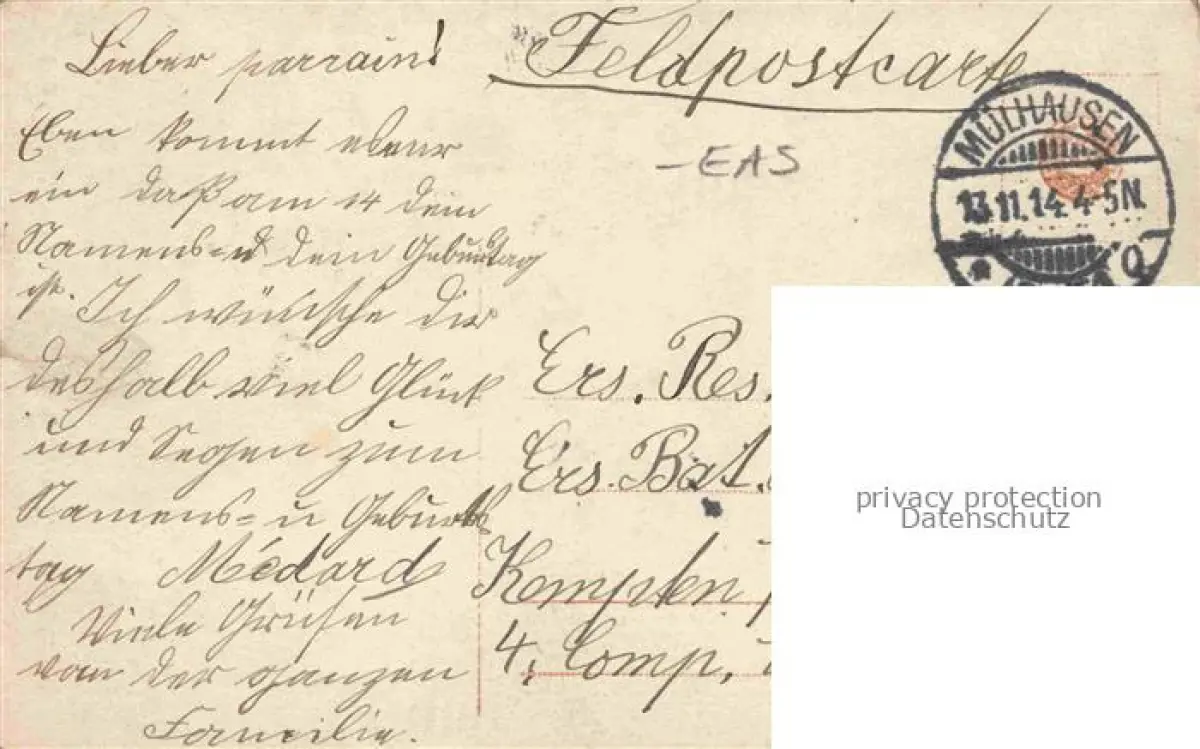 Lieber parrain!
Eben kommt
ein daß am 14 dein
Namens= u dein Geburtstag
ist. Ich wünsche dir
deshalb viel Glück
und Segen zum
Namens= u Geburts
tag Médard
Viele Grüsen
von der ganzen
Familie.
Feldpostcarte
-EAS
MÜLHAUSEN
13.11.14. 4-5N.
Ers. Res.
Ers. Bat.
Kempten
4. Comp.
privacy protection
Datenschutz